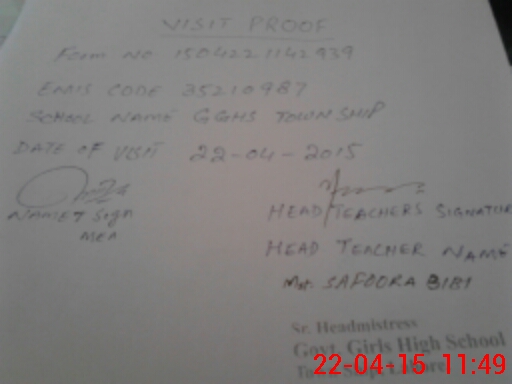 VISIT PROOF
FORM NO 1504221142939
EMIS CODE 35210987
SCHOOL NAME GGHS TOWNSHIP
DATE OF VISIT 22-04-2015
NAME & Sign
MEA
HEAD TEACHERS SIGNATUR
HEAD TEACHER NAME
Mst. SAFOORA BIBI
Sr. Headmistress
Govt. Girls High School
22-04-15 11:49